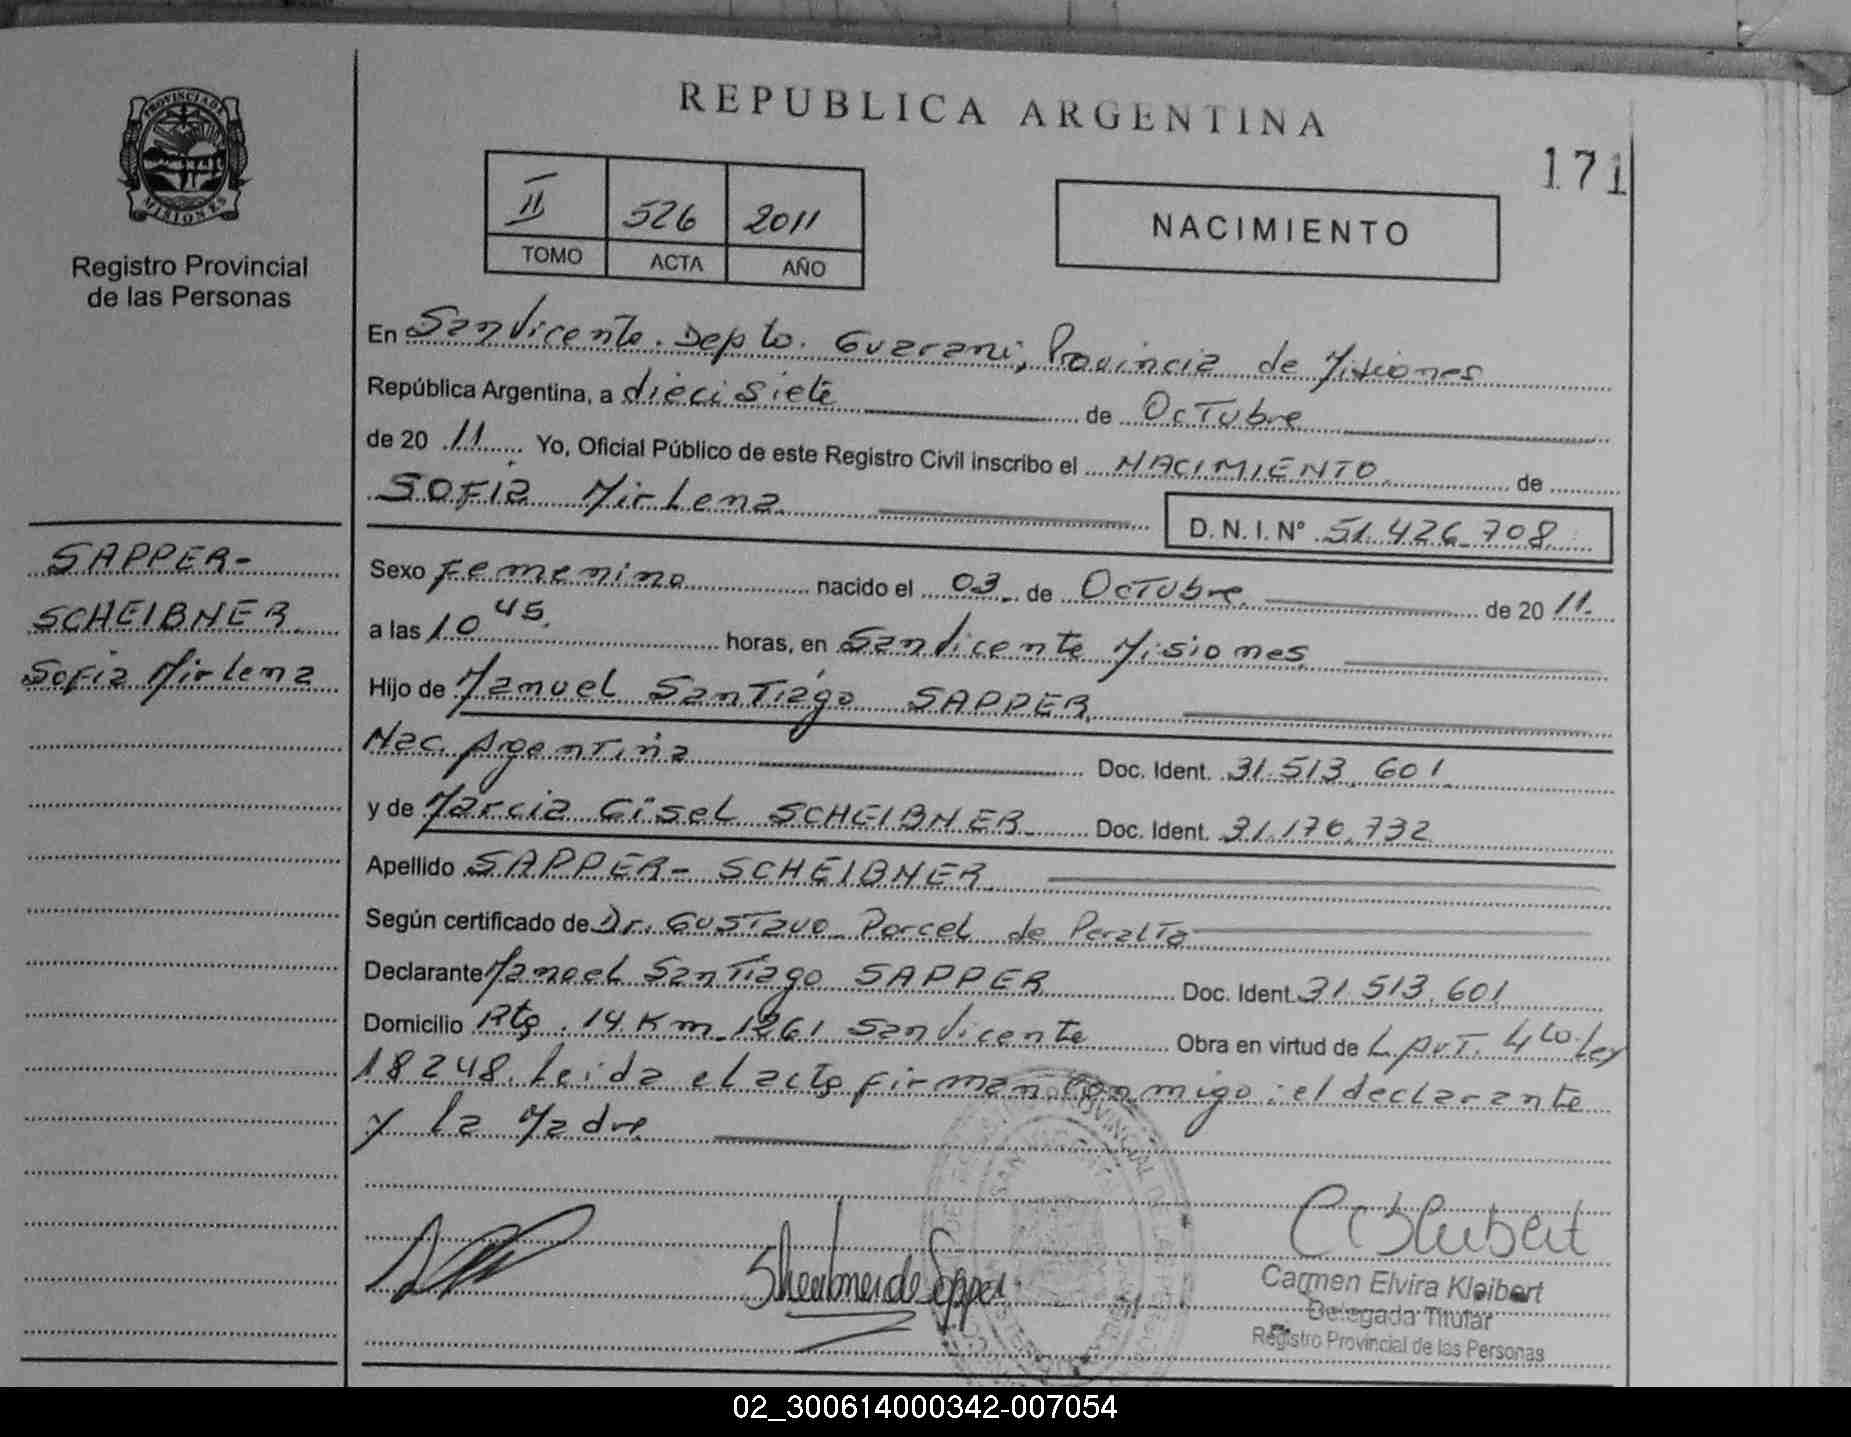 REPUBLICA ARGENTINA
171
PROVINCIA DE
MISIONES
Registro Provincial
de las Personas
II 526 2011
TOMO ACTA AÑO
NACIMIENTO
En San Vicente. Depto. Guarani, Provincia de Misiones
República Argentina, a diecisiete de Octubre
de 2011. Yo, Oficial Público de este Registro Civil inscribo el NACIMIENTO de
SOFIA Mirlena
D. N. I. Nº 51.426.708
SAPPER-
SCHEIBNER
Sofia Mirlena
Sexo Femenino nacido el 03 de Octubre de 2011.
a las 10 45 horas, en San Vicente Misiones
Hijo de Manuel Santiago SAPPER
Nac. Argentina Doc. Ident. 31.513.601
y de Marcia Gisel SCHEIBNER Doc. Ident. 31.170.732
Apellido SAPPER- SCHEIBNER
Según certificado de Dr. Gustavo Porcel de Peralta
Declarante Manuel Santiago SAPPER Doc. Ident. 31.513.601
Domicilio Rta. 14 Km 1261 San Vicente Obra en virtud de L. Art. 4to. Ley
18248. Leida el acta firman conmigo: el declarante
y la Madre
Scheibner de Sapper
Carmen Elvira Kleibert
Delegada Titular
Registro Provincial de las Personas
02_300614000342-007054